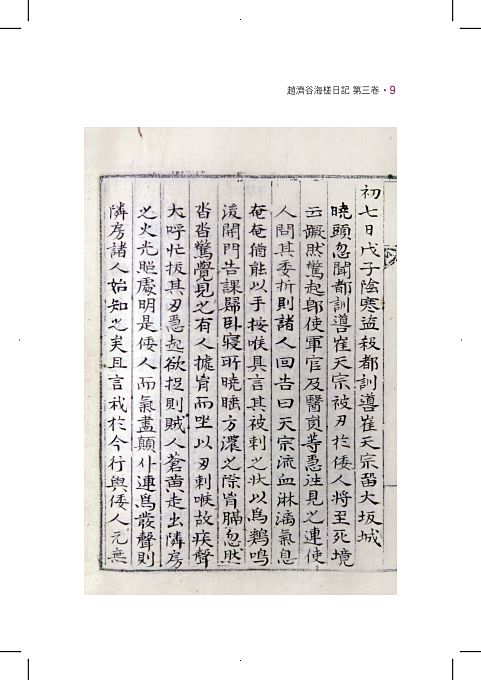 趙濟谷海槎日記 第三卷 · 9
初七日戊子陰寒盜殺都訓導崔天宗留大坂城
曉頭忽聞都訓導崔天宗被刃於倭人將至死境
云飜然驚起卽使軍官及醫員等急往見之連使
人問其委折則諸人回告曰天宗流血淋漓氣息
奄奄猶能以手按喉具言其被刺之狀以爲鷄鳴
後開門告課歸臥寢所曉睡方濃之際胷膈忽然
沓沓驚覺見之有人據胷而坐以刃刺喉故疾聲
大呼忙拔其刃急起欲捉則賊人蒼黃走出隣房
之火光照處明是倭人而氣盡顛仆連爲發聲則
隣房諸人始知之矣且言我於今行與倭人元無